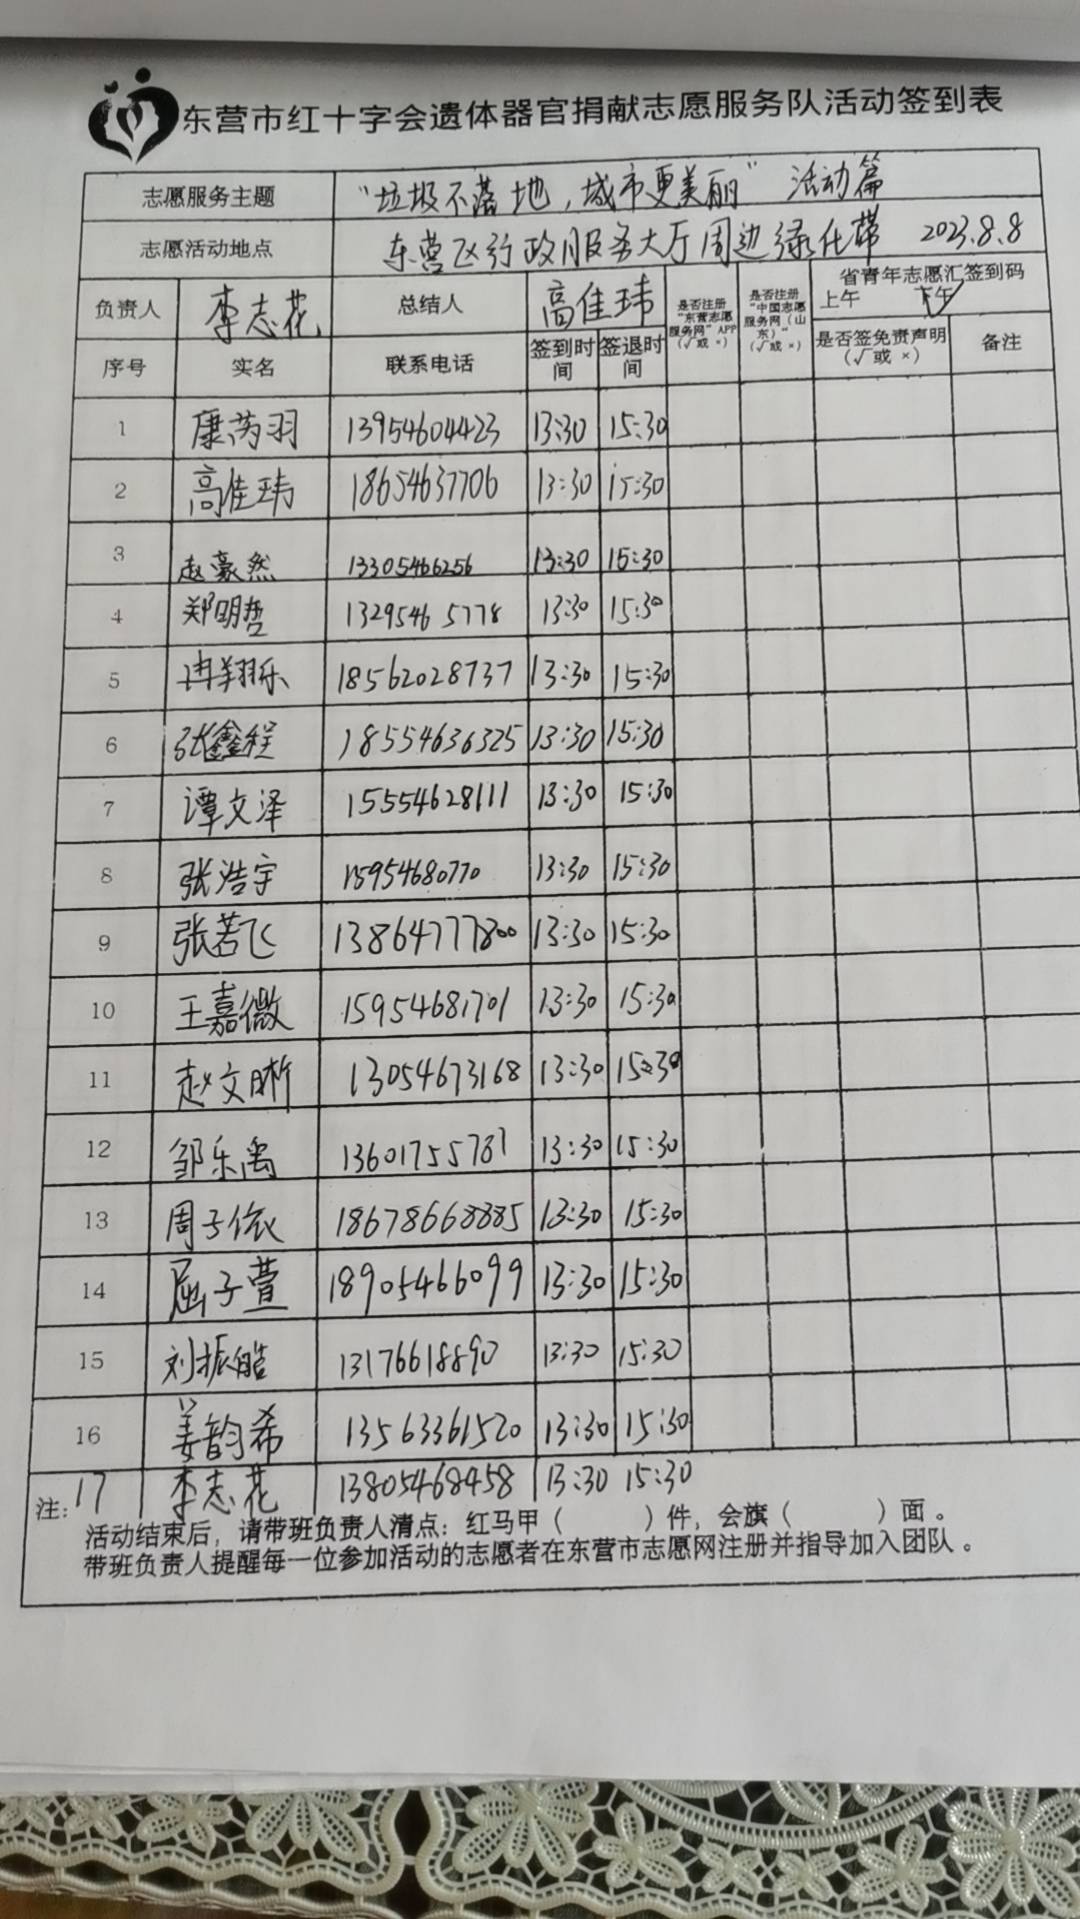 东营市红十字会遗体器官捐献志愿服务队活动签到表
志愿服务主题 “垃圾不落地,城市更美丽” 活动篇
志愿活动地点 东营区行政服务大厅周边绿化带 2023.8.8
负责人 李志花 总结人 高佳玮 是否注册“东营志愿服务网”APP(√或 ×) 是否注册“中国志愿服务网(山东)”(√或 ×) 省青年志愿汇签到码 上午 下午√
序号 实名 联系电话 签到时间 签退时间 是否签免责声明(√或 ×) 备注
1 康芮羽 13954604423 13:30 15:30
2 高佳玮 18654637706 13:30 15:30
3 赵豪然 13305466256 13:30 15:30
4 郑明哲 13295465778 13:30 15:30
5 冉翔乐 18562028737 13:30 15:30
6 张鑫程 18554636325 13:30 15:30
7 谭文泽 15554628111 13:30 15:30
8 张浩宇 15954680770 13:30 15:30
9 张若飞 13864777800 13:30 15:30
10 王嘉微 15954681701 13:30 15:30
11 赵文晰 13054673168 13:30 15:30
12 邹乐禹 13601755787 13:30 15:30
13 周子依 18678668885 13:30 15:30
14 屈子萱 18905466099 13:30 15:30
15 刘振皓 13176618890 13:30 15:30
16 姜韵希 13563361520 13:30 15:30
注: 17 李志花 13805468458 13:30 15:30
活动结束后,请带班负责人清点:红马甲( )件,会旗( )面。
带班负责人提醒每一位参加活动的志愿者在东营市志愿网注册并指导加入团队。